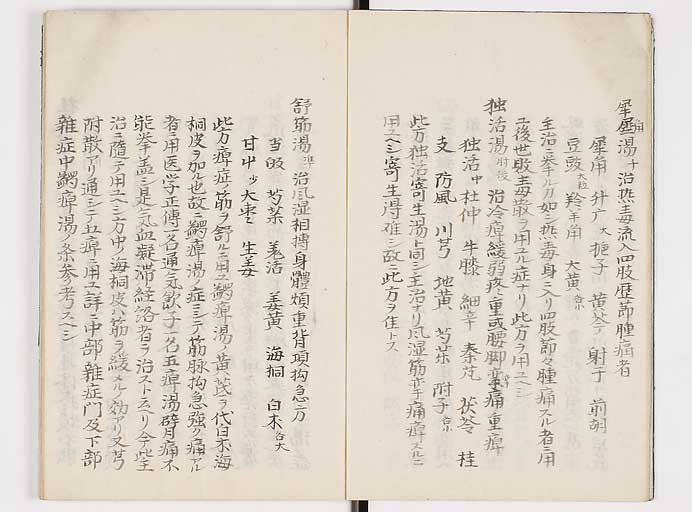 犀角湯 千 治热毒流入四肢歴節腫痛者
犀角 升广 大 梔子 黄芩 射干 前胡
豆豉 大粒 羚羊角 大黄 各小
主治ニ挙ル如シ热毒身ニ入リ四肢節々腫痛スル者ニ用
ユ後世敗毒散ヲ用ユル症ナリ此方ヲ用ユヘシ
独活湯 肘後 治冷痺緩弱疼重或腰脚挛痛重痺
独活 中 杜仲 牛膝 細辛 秦艽 茯苓 桂
支 防風 川芎 地黄 芍薬 附子 各小
此方独活寄生湯ト同シ主治ナリ風湿筋挛痛痺スルニ
用ユヘシ寄生得难シ故ニ此方ヲ佳トス
舒筋湯 準 治風湿相搏身體煩重背項拘急方
当皈 芍薬 羌活 姜黄 海桐 白朮 各大
甘中 少 大枣 生姜
此方痺症ノ筋ヲ舒ルニ用ユ蠲痺湯ノ黄芪ヲ代白朮海
桐皮ヲ加ル也故ニ蠲痺湯ノ症ニシテ筋脉拘急強ク痛アル
者ニ用医学正傳一名通气飲子一名五痺湯臂月痛不
能挙盖ニ是气血凝滞経絡者ヲ治ストミヘリ今此主
治ニ隨テ用ユヘシ方中ノ海桐皮ハ筋ヲ緩メルノ効アリ又芎
附散アリ通シテ五痺ニ用ユ詳ニ中部雜症門及下部
雜症中蠲痺湯ノ条参考スヘシ